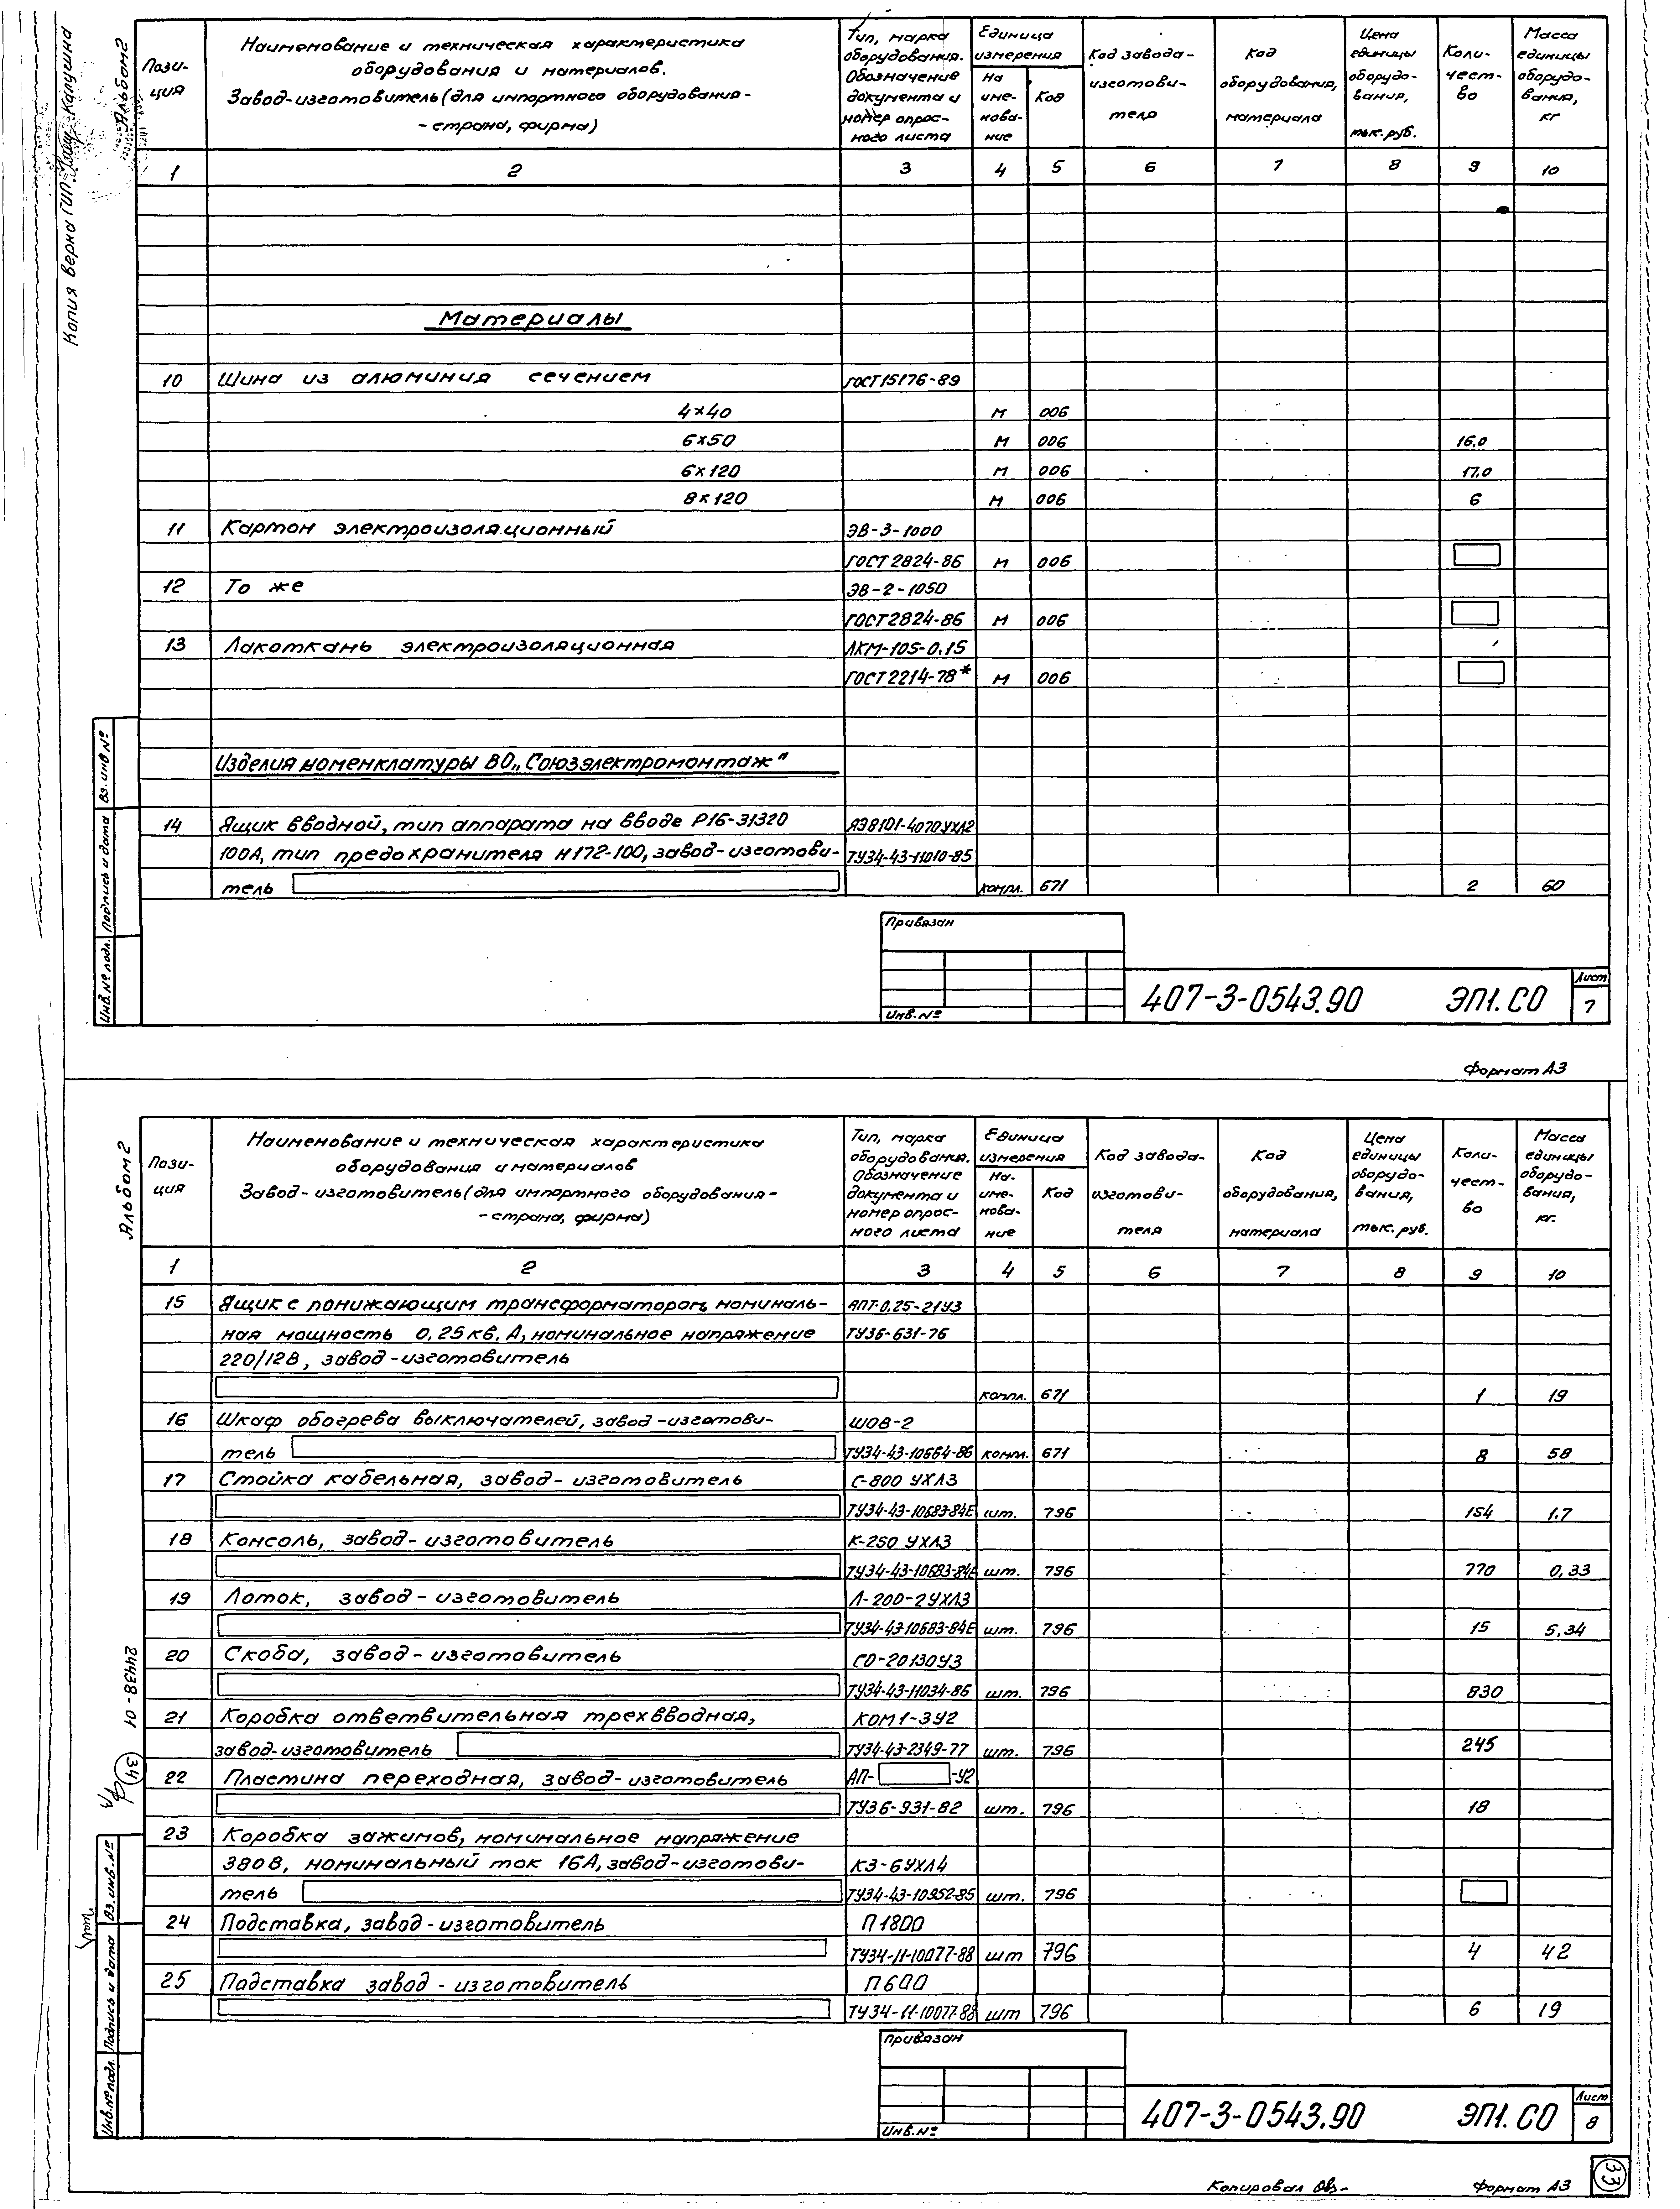 Копия верна ГИП Калугина
Альбом 2
Пози-
ция
Наименование и техническая характеристика
оборудования и материалов.
Завод-изготовитель (для импортного оборудования-
- страна, фирма)
Тип, марка
оборудования.
Обозначение
документа и
номер опрос-
ного листа
Единица
измерения
На
име-
нова-
ние
Код
Код завода-
изготови-
теля
Код
оборудования,
материала
Цена
единицы
оборудо-
вания,
тыс. руб.
Коли-
чест-
во
Масса
единицы
оборудо-
вания,
кг
1 2 3 4 5 6 7 8 9 10
Материалы
10 Шина из алюминия сечением ГОСТ 15176-89
4×40 м 006
6×50 м 006 16,0
6×120 м 006 17,0
8×120 м 006 6
11 Картон электроизоляционный ЭВ-3-1000
ГОСТ 2824-86 м 006
12 То же ЭВ-2-1050
ГОСТ 2824-86 м 006
13 Лакоткань электроизоляционная ЛКМ-105-0,15
ГОСТ 2214-78* м 006
Изделия номенклатуры ВО „Союзэлектромонтаж"
14 Ящик вводной, тип аппарата на вводе Р16-31320 ЯЭ8101-4070УХЛ2
100А, тип предохранителя Н172-100, завод-изготови- ТУ34-43-11010-85
тель компл. 671 2 60
Вз. инв №
Подпись и дата
Инв. № подл.
Привязан
Инв. №
407-3-0543.90 ЭП1.СО
Лист
7
Формат А3
Альбом 2
Пози-
ция
Наименование и техническая характеристика
оборудования и материалов
Завод-изготовитель (для импортного оборудования-
- страна, фирма)
Тип, марка
оборудования.
Обозначение
документа и
номер опрос-
ного листа
Единица
измерения
На-
име-
нова-
ние
Код
Код завода-
изготови-
теля
Код
оборудования,
материала
Цена
единицы
оборудо-
вания,
тыс. руб.
Коли-
чест-
во
Масса
единицы
оборудо-
вания,
кг.
1 2 3 4 5 6 7 8 9 10
15 Ящик с понижающим трансформатором, номиналь- ЯПТ-0,25-21У3
ная мощность 0,25 кв.А, номинальное напряжение ТУ36-631-76
220/12В, завод-изготовитель
компл. 671 1 19
16 Шкаф обогрева выключателей, завод-изготови- ШОВ-2
тель ТУ34-43-10664-86 компл. 671 8 58
17 Стойка кабельная, завод-изготовитель С-800 УХЛ3
ТУ34-43-10683-84Е шт. 796 154 1,7
18 Консоль, завод-изготовитель К-250 УХЛ3
ТУ34-43-10683-84Е шт. 796 770 0,33
19 Лоток, завод-изготовитель Л-200-2УХЛ3
ТУ34-43-10683-84Е шт. 796 15 5,34
20 Скоба, завод-изготовитель СО-20130У3
ТУ34-43-11034-86 шт. 796 830
21 Коробка ответвительная трехвводная, КОМ1-3У2
завод-изготовитель ТУ34-43-2349-77 шт. 796 245
22 Пластина переходная, завод-изготовитель АП- -У2
ТУ36-931-82 шт. 796 18
23 Коробка зажимов, номинальное напряжение
380 В, номинальный ток 16А, завод-изготови- КЗ-6УХЛ4
тель ТУ34-43-10952-85 шт. 796
24 Подставка, завод-изготовитель П1800
ТУ34-11-10077-88 шт 796 4 42
25 Подставка завод-изготовитель П600
ТУ34-11-10077-88 шт 796 6 19
24438-01
34
Вз. инв. №
Подпись и дата
Инв. № подл.
Привязан
Инв. №
407-3-0543.90 ЭП1.СО
Лист
8
Копировал
Формат А3
33